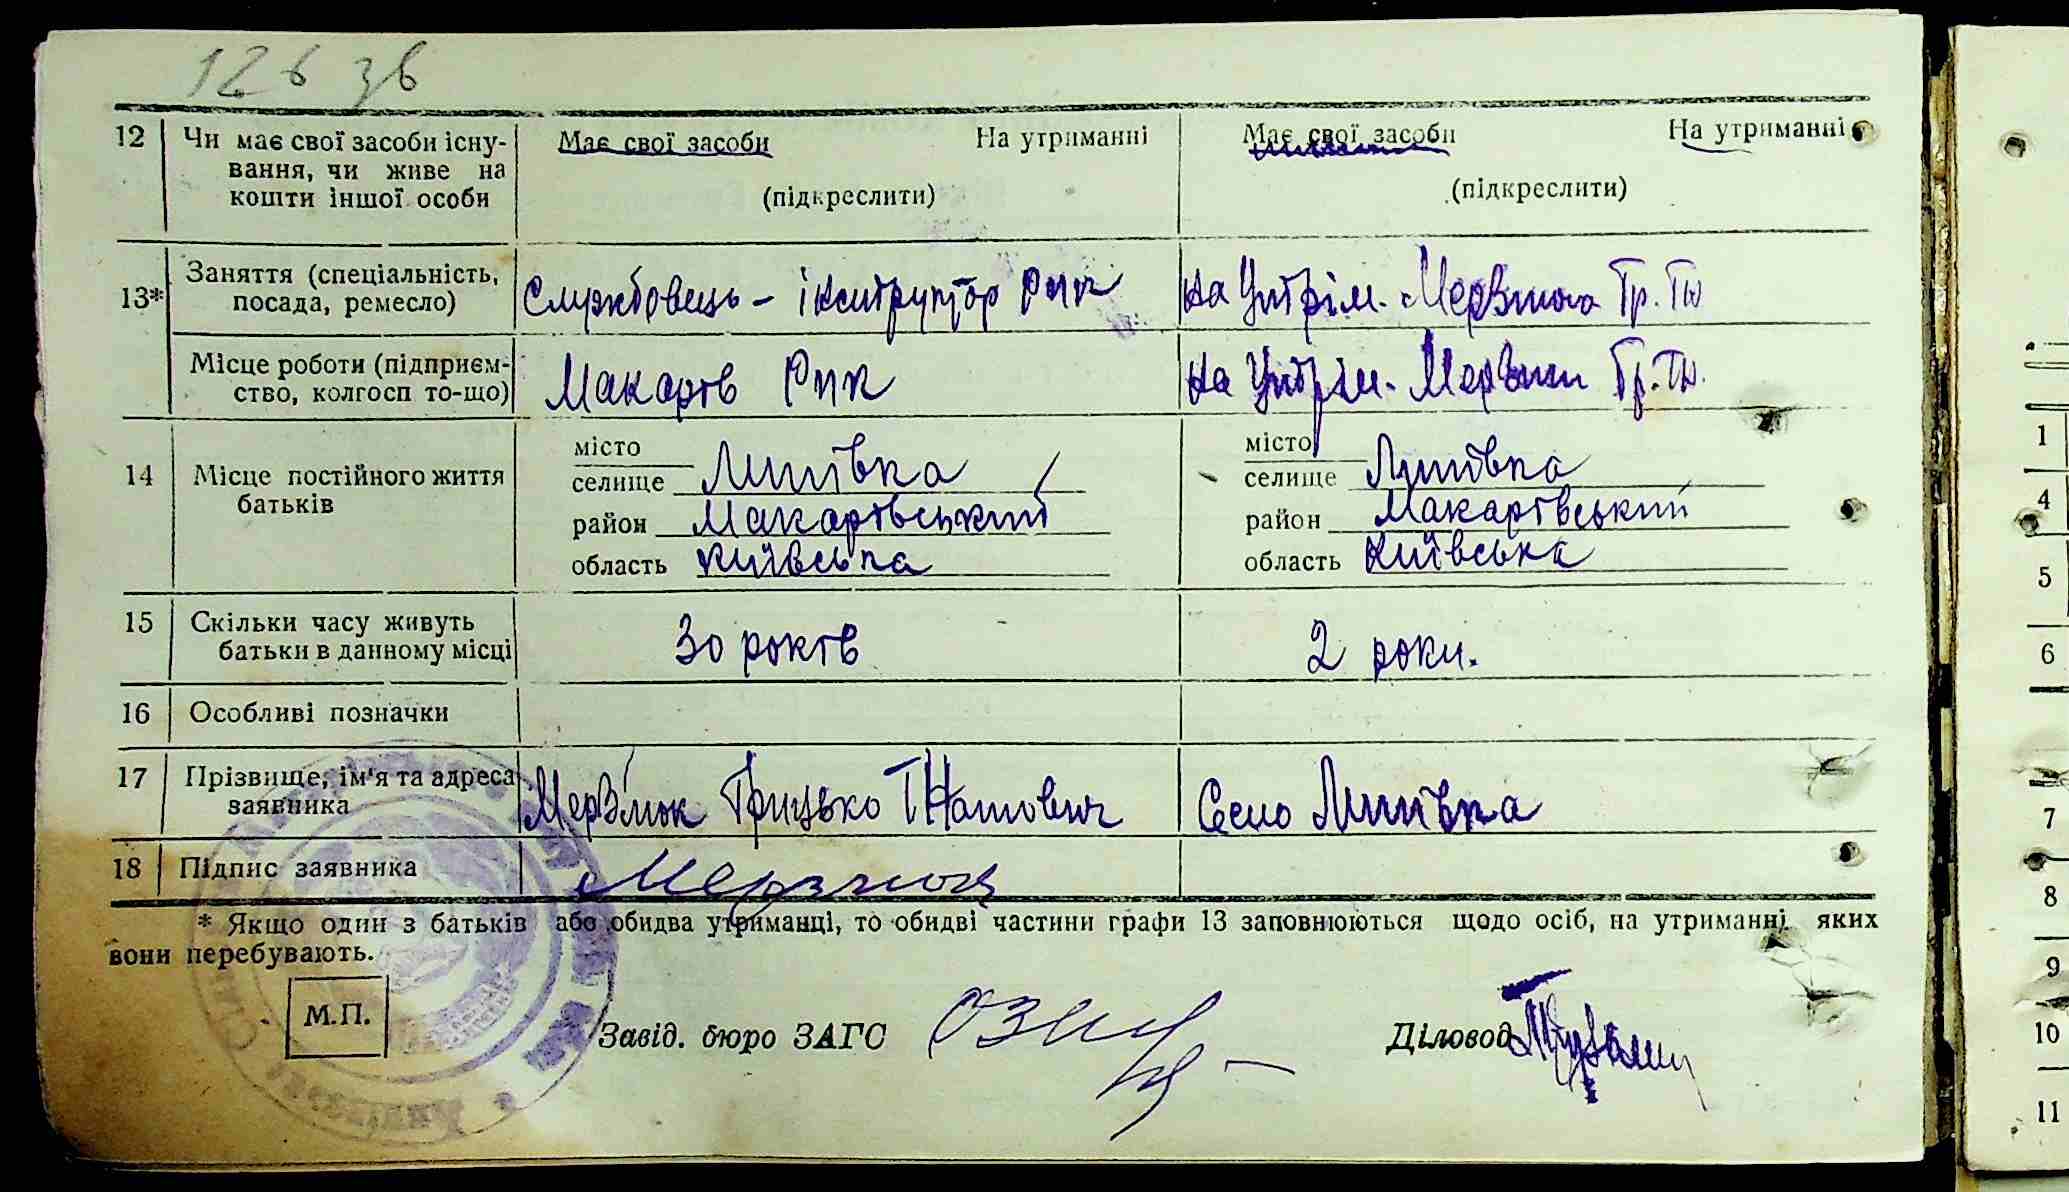 126 зв
12 Чи має свої засоби існу- Має свої засоби На утриманні Має свої засоби На утриманні
вання, чи живе на
кошти іншої особи (підкреслити) (підкреслити)
13* Заняття (спеціальність,
посада, ремесло) Службовець - інструктор РПК На Утрім. Гр. Гн
Місце роботи (підприєм-
ство, колгосп то-що) Макарів РПК На Утрім. Гр. Гн.
14 Місце постійного життя
батьків
місто місто
селище Липівка селище Липівка
район Макарівський район Макарівський
область Київська область Київська
15 Скільки часу живуть
батьки в данному місці 30 років 2 роки.
16 Особливі позначки
17 Прізвище, ім'я та адреса
заявника Мерзлюк Грицько Гнатович Село Липівка
18 Підпис заявника Мерзлюк
* Якщо один з батьків або обидва утриманці, то обидві частини графи 13 заповнюються щодо осіб, на утриманні яких
вони перебувають.
М.П.
Завід. бюро ЗАГС Діловод
1
4
5
6
7
8
9
10
11